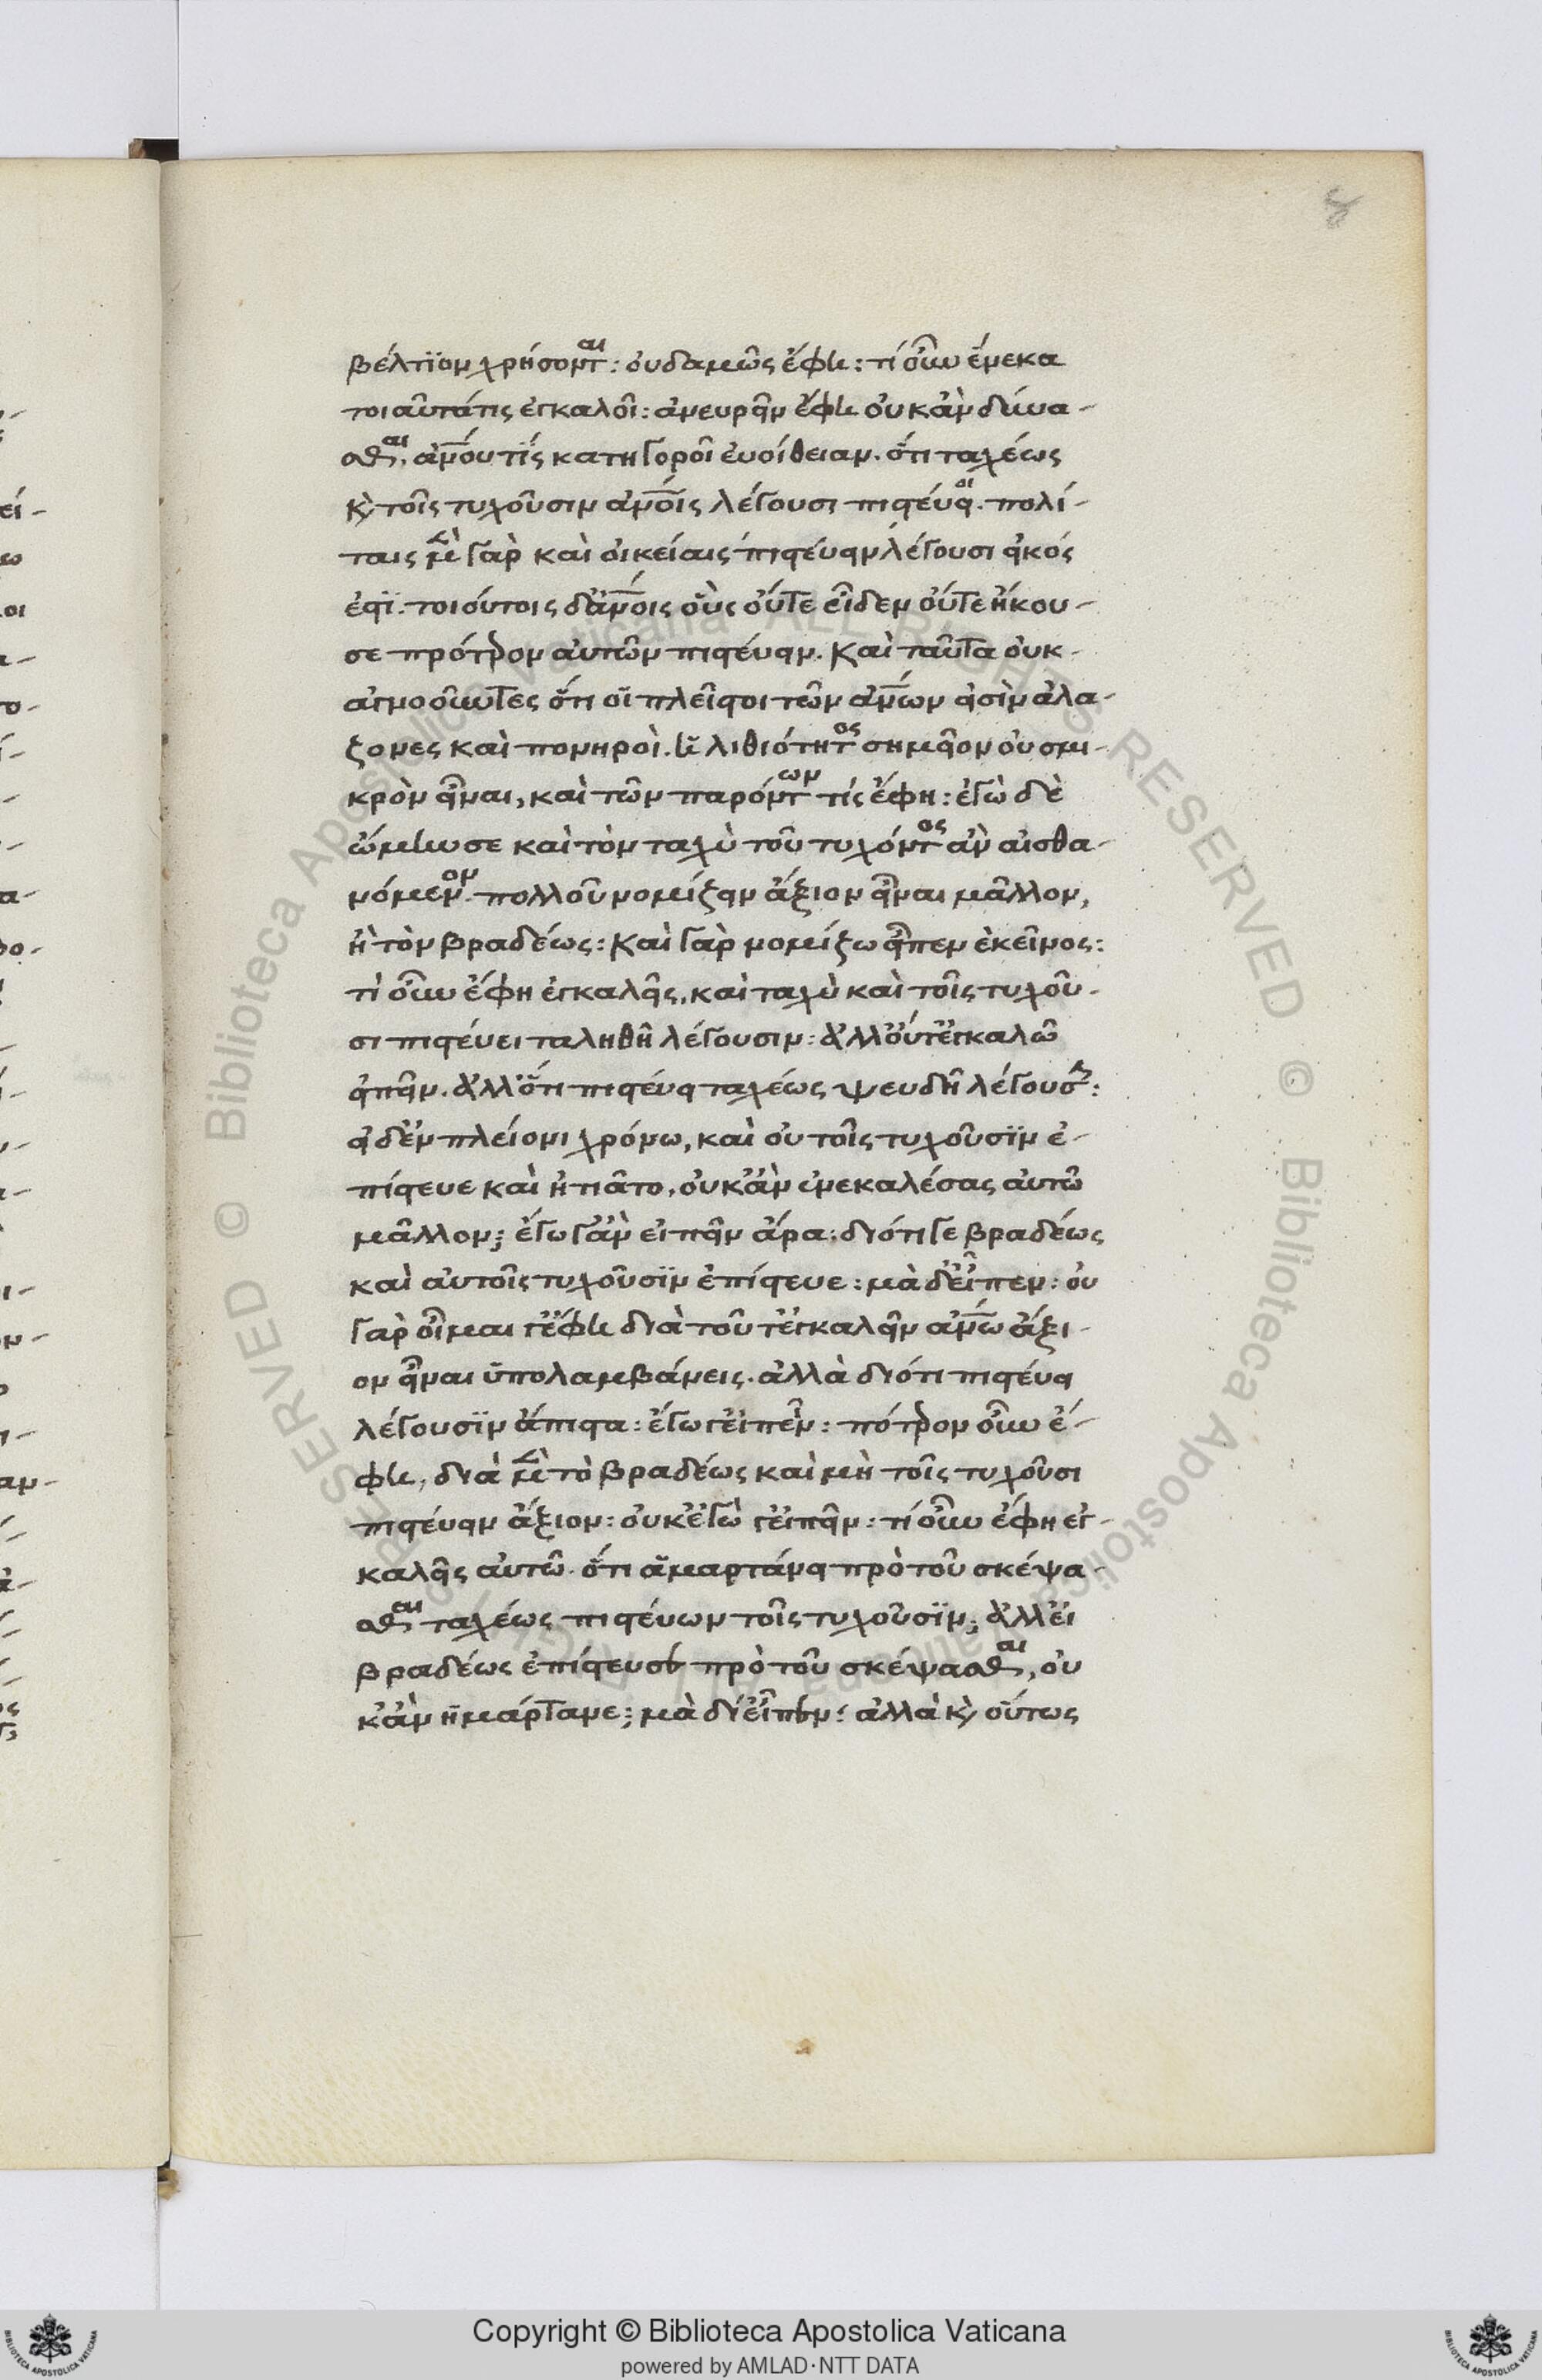 βέλτϊον χρήσονται: ουδαμῶς ἔφη: τί οὖν ἕνεκα
τοιαῦτάτις ἐγκαλοῖ: ἀνευρεῖν ἔφη οὐκἂν δύνα-
σθαι. ἀνόυ τίς κατηγοροῖ ἐυοίθειαν. ὅτι ταχέως
κὶ τοῖς τυχοῦσιν ἀνοίς λέγουσι πιστεύοι. πολί-
ταις μὲν γὰρ καὶ οἰκείαις πιστεύειν λέγουσι εἰκός
ἐστϊ. τοιούτοις δἀνοις οὓς οὔτε εἶδεν οὔτε ἤκου-
σε πρότερον αὐτῶν πιστεύειν. Καὶ ταῦτα οὐκ
αγνοοῦντες ὅτι οἵ πλεῖστοι τῶν ἀνων εἰσὶν ἀλα-
ζονες καὶ πονηροὶ. ἠλιθιότητος σημεῖον οὐ σμι-
κρὸν εἶναι, καὶ τῶν παρόντων τίς ἔφη: ἐγὼ δὲ
ὤμην σε καὶ τὸν ταχὺ τοῦ τυχόντος ἂν αἰσθα-
νόμενον. πολλοῦ νομίζειν ἄξιον εἶναι μᾶλλον,
ἢ τὸν βραδέως: Καὶ γὰρ νομίζω εἶπεν ἐκεῖνος:
τὶ οὖν ἔφη ἐγκαλεῖς, καὶ ταχὺ καὶ τοῖς τυχοῦ-
σι πιστεύει ταληθῆ λέγουσιν: ἀλλὀύτἐγκαλῶ
εἰπεῖν. ἀλλ'ὅτι πιστεύει ταχέως ψευδῆ λέγουσιν:
εἰ δἐν πλείονι χρόνω, καὶ οὐ τοῖς τυχοῦσϊν ἐ-
πίστευε καὶ ἠπιᾶτο, οὐκἂν ἐνεκαλέσας αὐτῶ
μᾶλλον; ἔγωγἂν εἰπεῖν ἄρα: διότι γε βραδέως
καὶ αὐτοῖς τυχοῦσϊν ἐπίστευε: μὰ δἶεἶπεν: οὐ
γὰρ οἶμαι γἔφη διὰ τοῦ γἐγκαλεῖν ἀνω ἄξι-
ον εἶναι ὕπολαμβάνεις. ἀλλὰ διότι πιστεύει
λέγουσϊν ἄπιστα: ἔγωγἐιπεῖν: πότερον οὖν ἔ-
φη, διὰ μὲν τὸ βραδέως καὶ μὴ τοῖς τυχοῦσι
πιστεύειν ἄξιον: οὐκἐγὼ γἐιπεῖν: τί οὖν ἔφη ἐγ-
καλεῖς αὐτῶ. ὅτι ἅμαρτάνει πρὸ τοῦ σκέψα-
σθαι ταχέως πιστεύων τοῖς τυχοῦσϊν; ἀλλἐι
βραδέως ἐπίστευσεν πρὸ τοῦ σκέψασθαι, οὐ
κἂν ἥμάρτανε; μὰ δί'εἶπεν: ἀλλὰ κὶ οὕτως